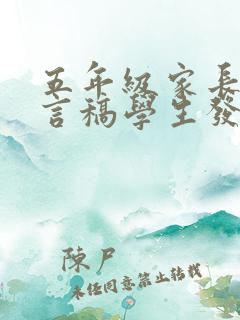 五年級家長
言稿學生發
陳尸
未经同意禁止转载